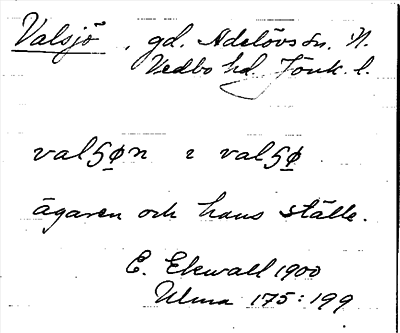 Valsjö, gd. Adelövs sn. N.
Vedbo hd. Jönk. l.
valʃøn i valʃø.
ägaren och hans ställe.
E. Ekwall 1900
Ulma 175:199